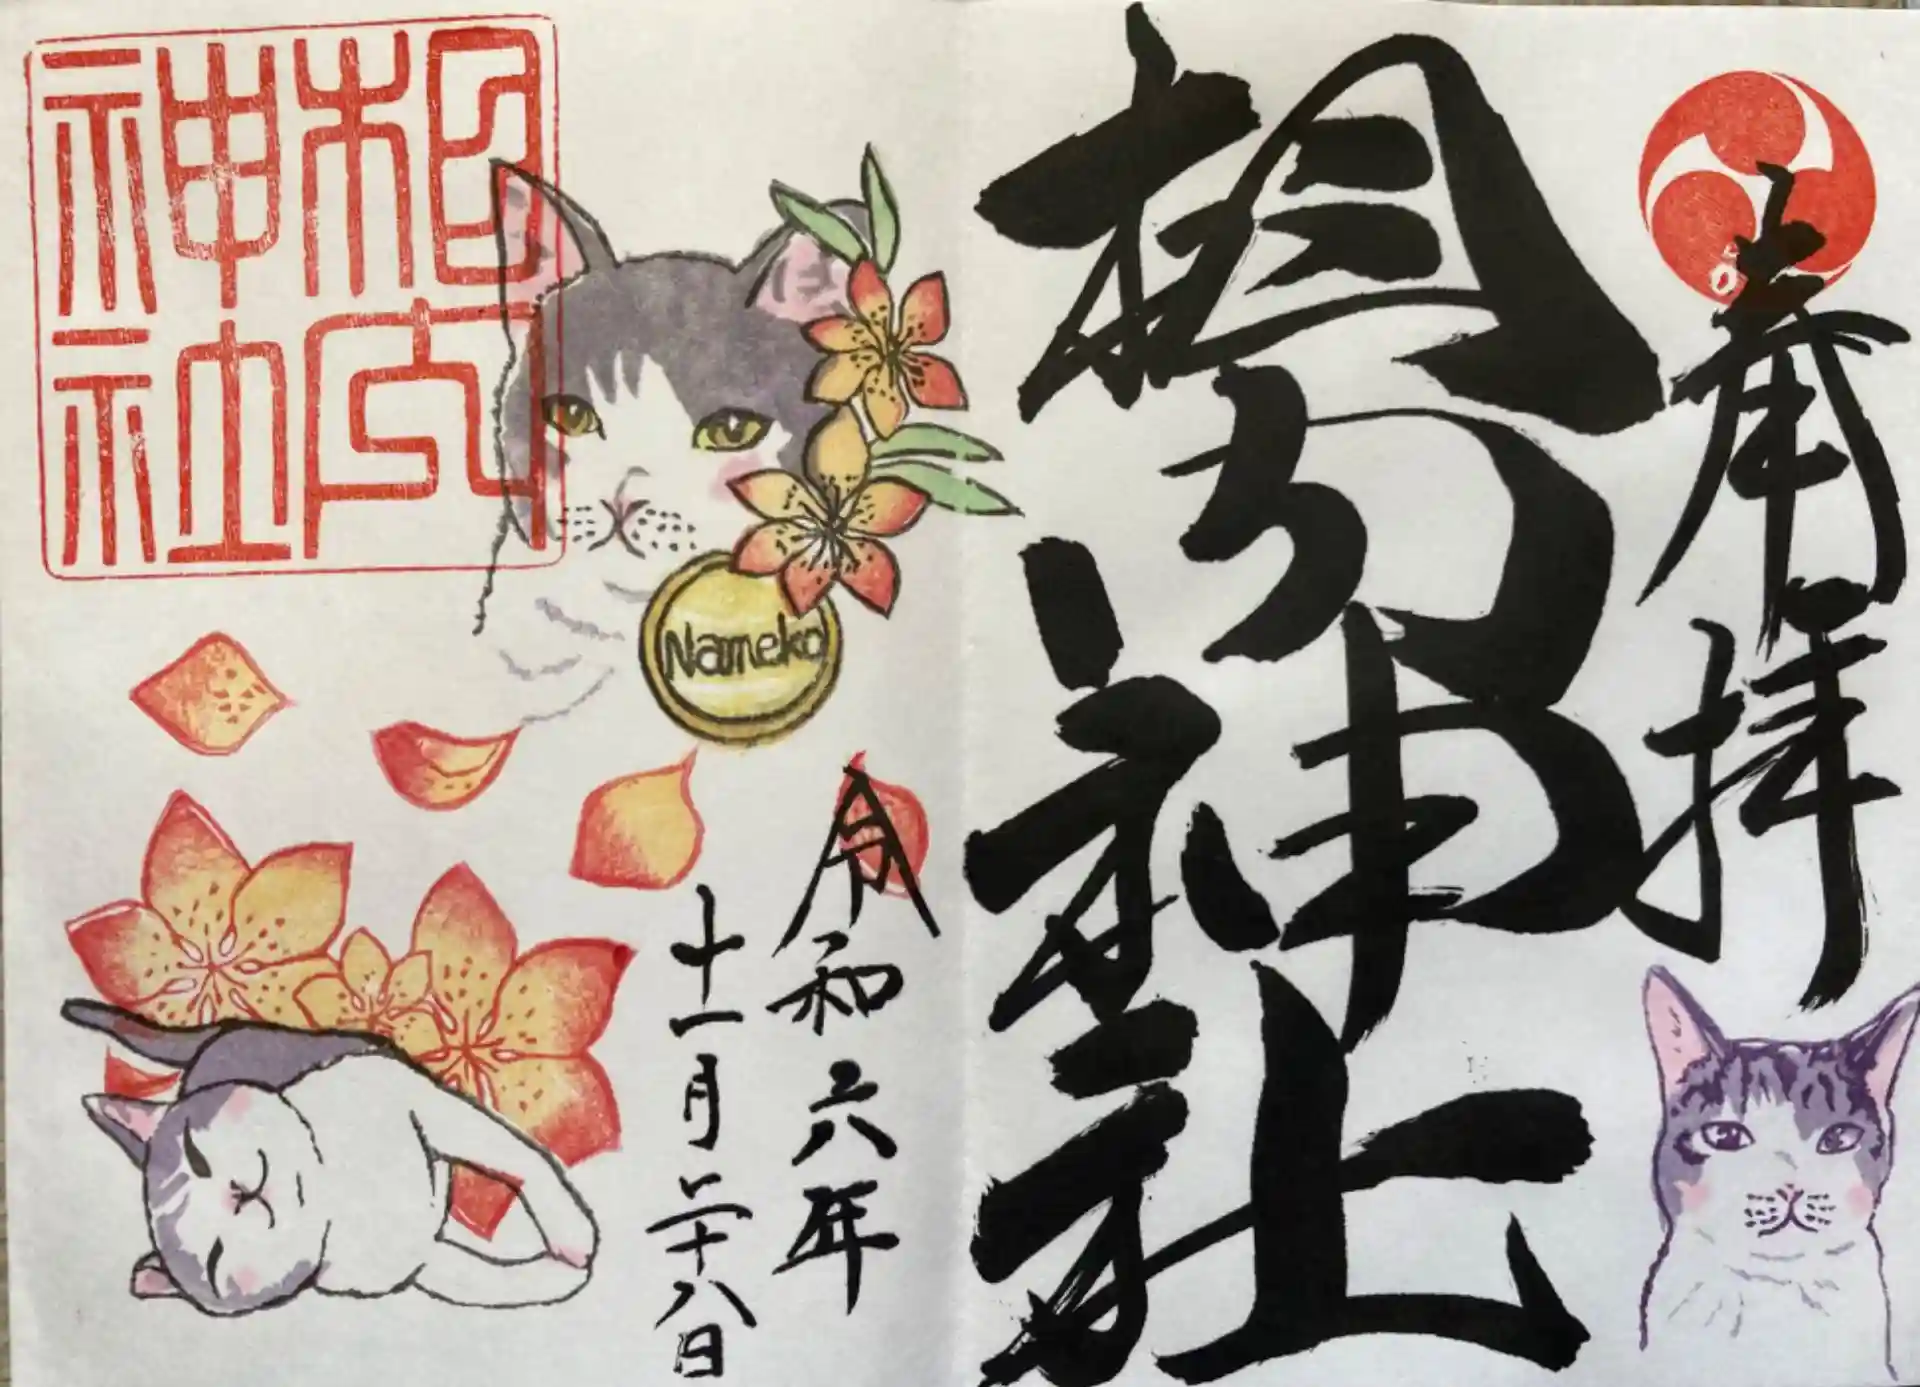 奉拝
相内神社
令和六年
十一月二十八日
Nameko
相内
神社